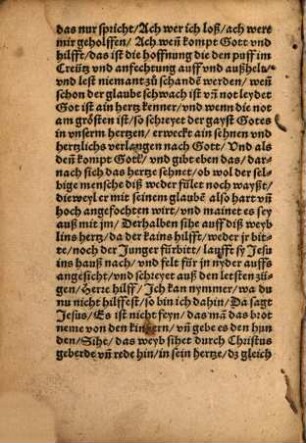 das nur spricht/ Ach wer ich loß/ ach were
mir geholffen/ Ach weñ kompt Gott vnd
hilfft/ das ist die hoffnung die den puff im
Creütz vnd anfechtung auff vnd außhelt/
vnd lest niemant zů schanden werden/ weñ
schon der glaube schwach ist vñ not leydet
Got ist ain hertz kenner/ vnd wenn die not
am grösten ist/ so schreyet der gayst Gotes
in vnserm hertzen/ erweckt ain sehnen vnd
hertzlichs verlangen nach Gott/ Vnd als
deñ kompt Gott/ vnd gibt eben das/ dar-
nach sich das hertze sehnet/ ob wol der sel-
bige mensche diß weder fület noch wayßt/
dieweyl er mit seinem glauben also hart vñ
hoch angefochten wirt/ vnd mainet es sey
auß mit jm/ Derhalben sihe auff diß weyb
lins hertz/ da der kains hilfft/ weder jr bit-
te/ noch der Junger fürbitt/ laufft sy Jesu
ins hauß nach/ vnd felt für jn nyder auffs
angesicht/ vnd schreyet auß den letsten zü-
gen/ Herre hilff/ Ich kan nymmer/ wa du
nu nicht hilffest/ so bin ich dahin/ Da sagt
Jesus/ Es ist nicht feyn/ das mã das brot
neme von den kindern/ vñ gebe es den hun
den/ Siht/ das weyb sihet durch Christus
geberde vñ rede hin/ in sein hertze/ dz gleich